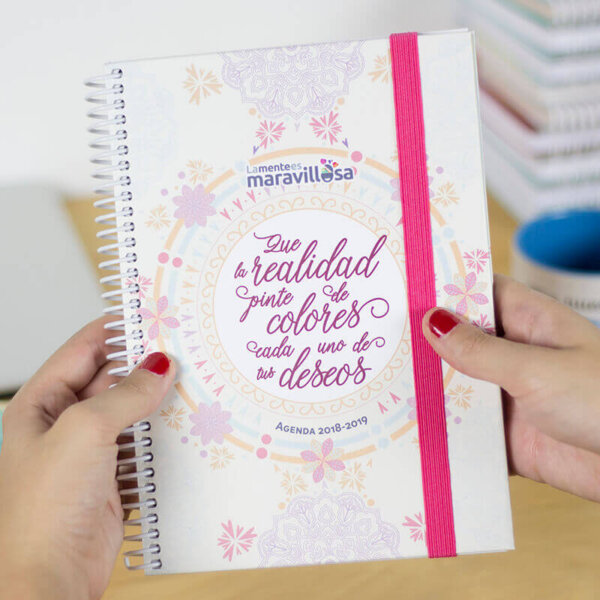 La mente es
maravillosa
Que
la realidad
pinte de
colores
cada uno de
tus deseos
AGENDA 2018-2019